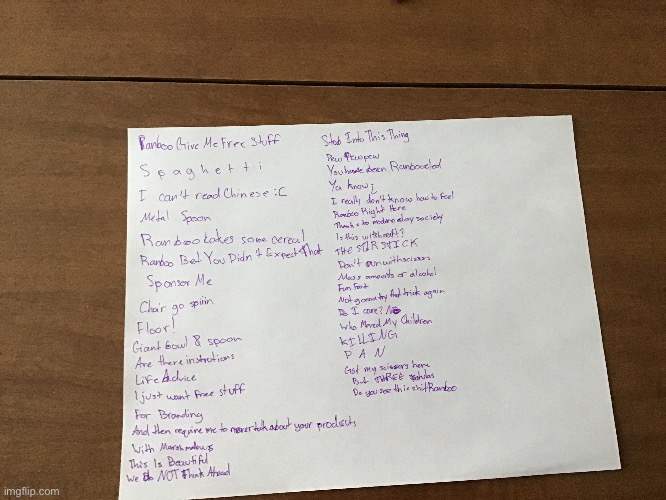 Ranboo Give Me Free Stuff
S p a g h e t t i
I can't read Chinese :C
Metal Spoon
Ranboo takes some cereal
Ranboo Bet You Didn't Expect That
Sponsor Me
Chair go spiiin
Floor!
Giant bowl & spoon
Are there instrotions
Life Advice
I just want free stuff
For Branding
And then require me to never talk about your products
With Marshmallows
This Is Beautiful
We do NOT Think Ahead
Stab Into This Thing
Pew Pewpew
You have been Ranbooed
Ya know,
I really don't know how to feel
Ranboo Right Here
Thanks to modern day society
Is this witchcraft?
THE STIR STICK
Don't run with scissors
Mass amounts of alcohol
Fun Fact
Not gonna try that trick again
Do I care? NO
Who Moved My Children
KILLING
P A N
Got my scissors here
But THREE
Do you see this shit Ranboo
imgflip.com